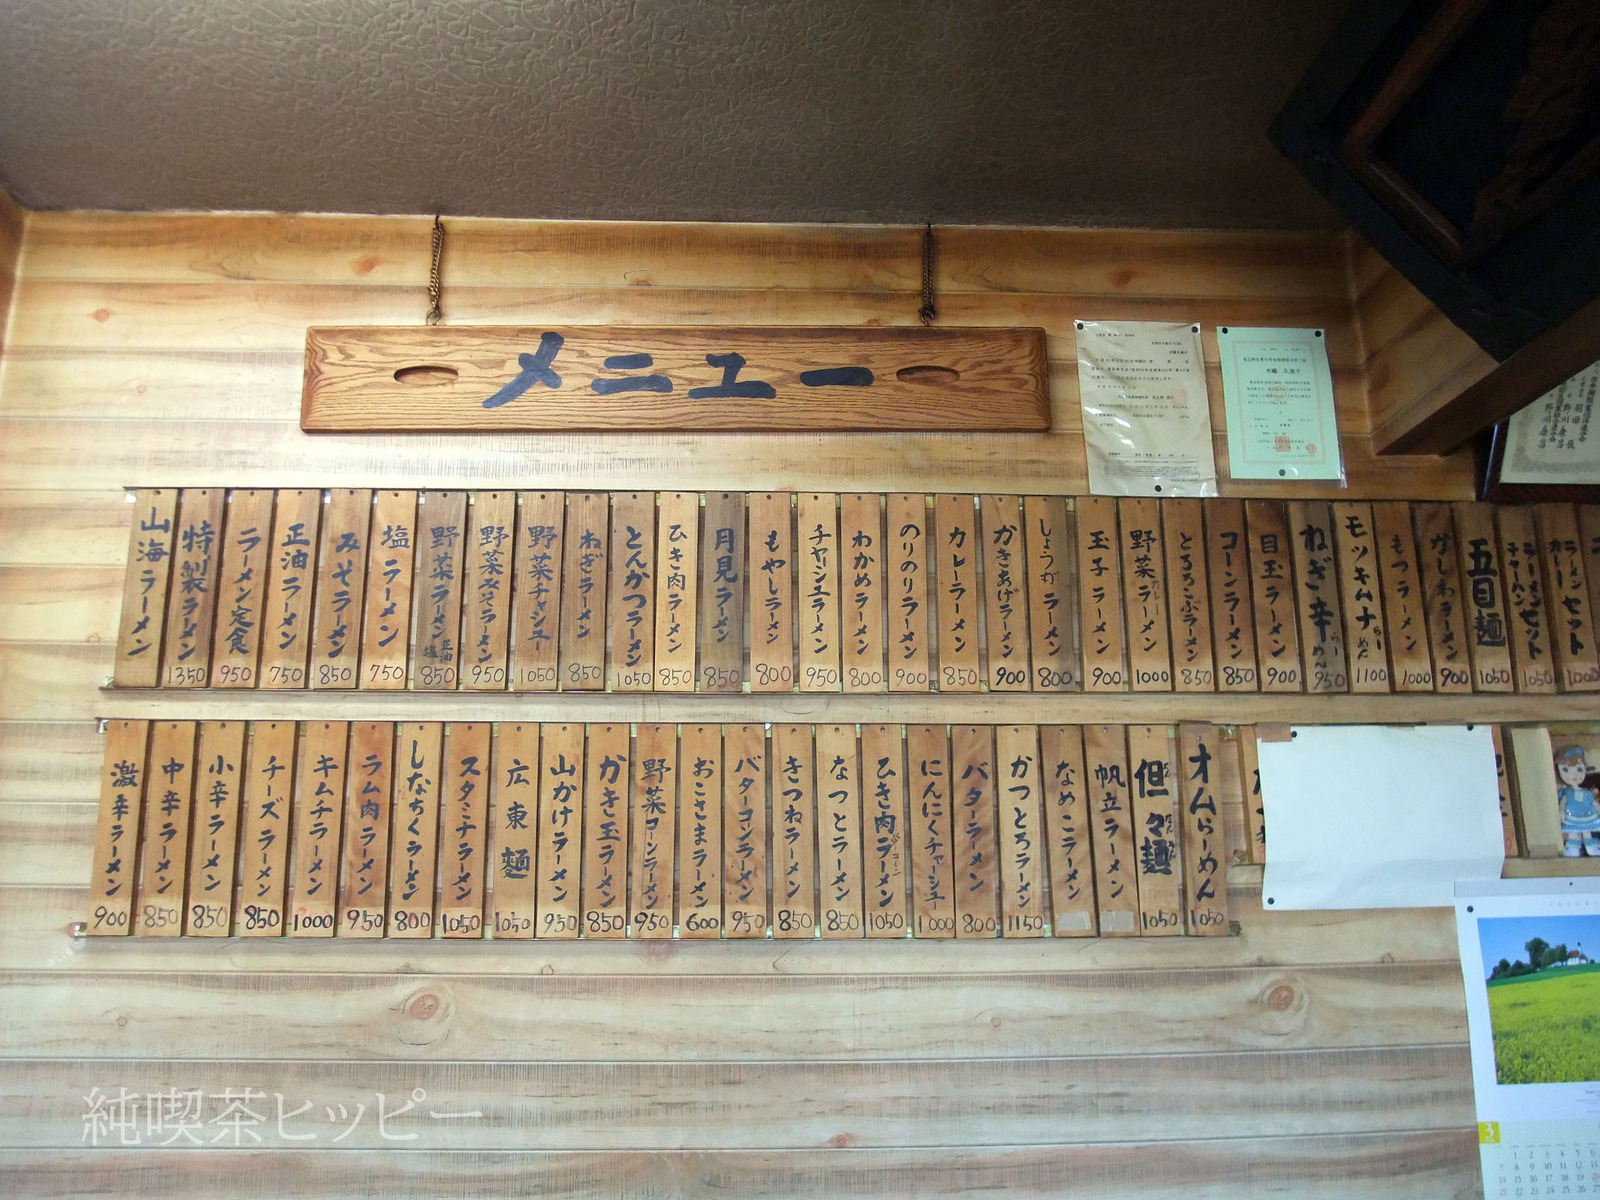 メニュー
山海ラーメン
特製ラーメン 1350
ラーメン定食 950
正油ラーメン 750
みそラーメン 850
塩ラーメン 750
野菜ラーメン 正油 塩 850
野菜みそラーメン 950
野菜チャシュー 1050
ねぎラーメン 850
とんかつラーメン 1050
ひき肉ラーメン 850
月見ラーメン 850
もやしラーメン 800
チャシュエラーメン 950
わかめラーメン 800
のりのりラーメン 900
カレーラーメン 850
かきあげラーメン 900
しょうがラーメン 800
玉子ラーメン 900
野菜カレーラーメン 1000
とろろこぶラーメン 850
コーンラーメン 850
目玉ラーメン 900
ねぎ辛らーめん 950
モツキムチらーめん 1100
もつラーメン 1000
かしわラーメン 900
五目麺 1050
ラーメンセット チャーハン 1050
ラーメンセット カレー 1000
激辛ラーメン 900
中辛ラーメン 850
小辛ラーメン 850
チーズラーメン 850
キムチラーメン 1000
ラム肉ラーメン 950
しなちくラーメン 800
スタミナラーメン 1050
広東麺 1050
山かけラーメン 950
かき玉ラーメン 850
野菜コーンラーメン 950
おこさまラーメン 600
バターコンラーメン 950
きつねラーメン 850
なっとラーメン 850
ひき肉ラーメン 1050
にんにくチャーシュー 1000
バターラーメン 800
かつとろラーメン 1150
なめこラーメン
帆立ラーメン
但々麺 1050
オムらーめん 1050
木幡 久恵子
3
純喫茶ヒッピー